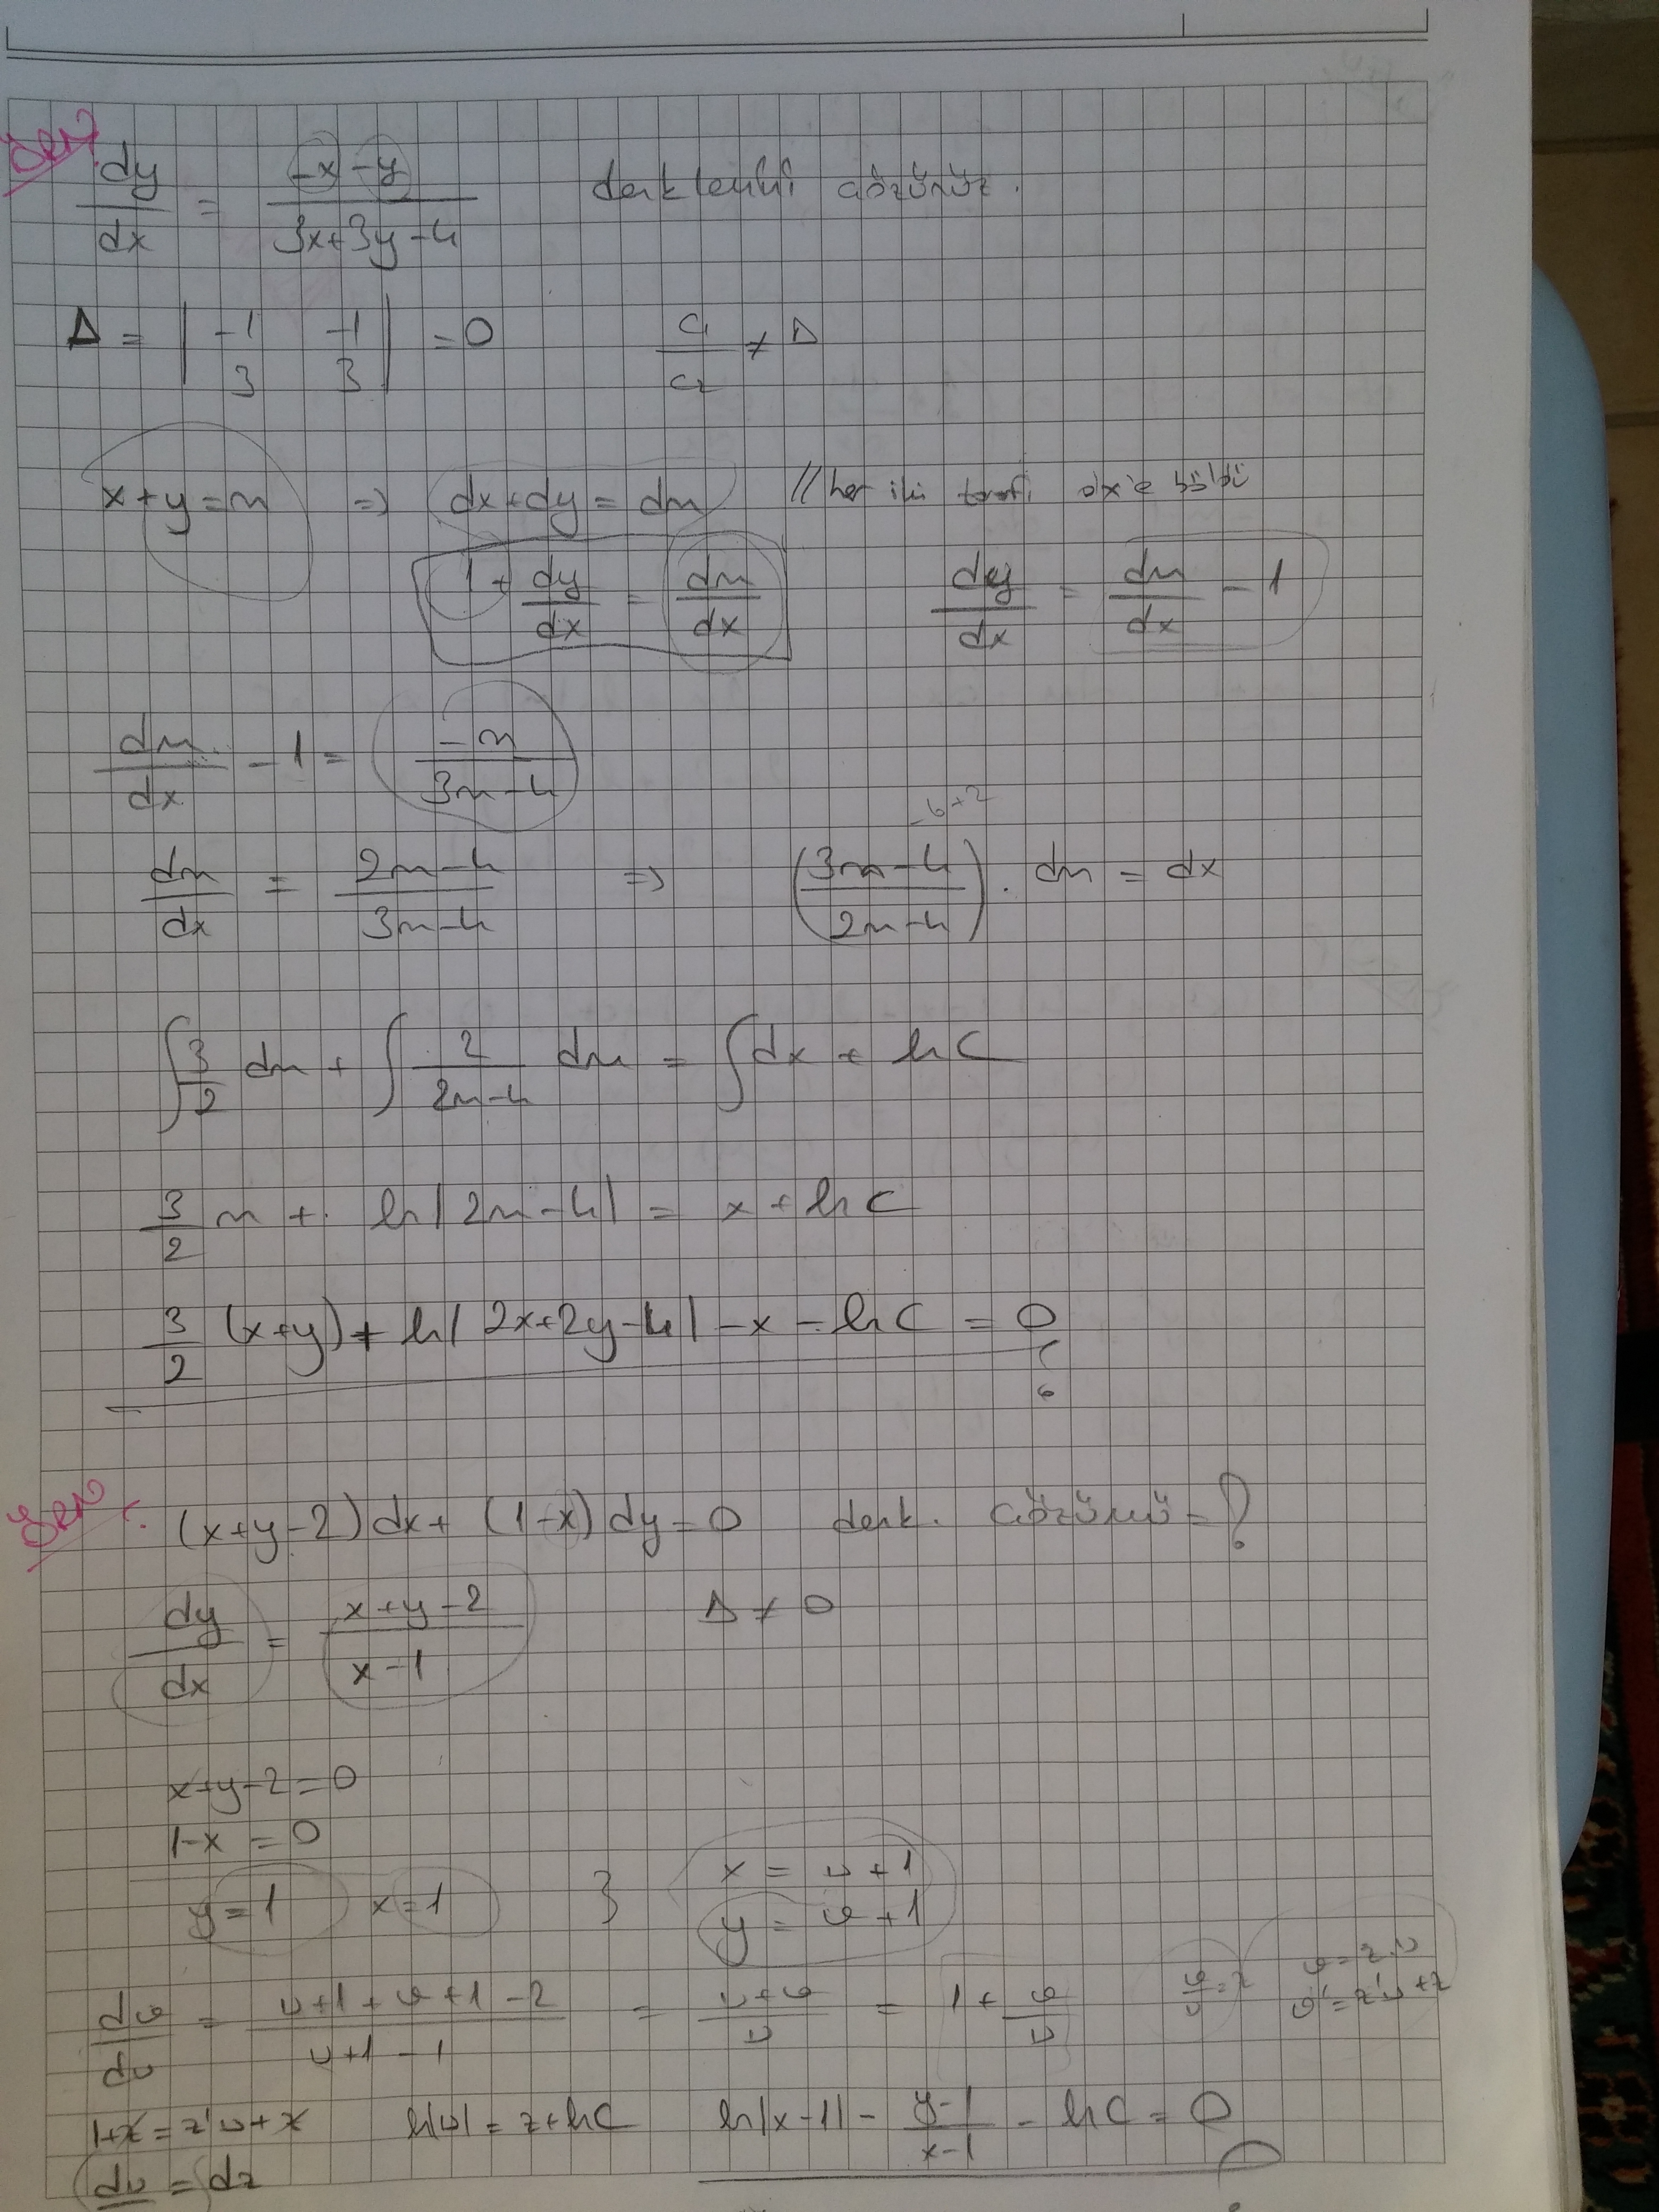 Örn: dy/dx = (-x-y)/(3x+3y-4) denklemini çözünüz.
Δ = | -1 -1 ; 3 3 | = 0 c1/c2 ≠ Δ
x+y=u ⇒ dx+dy = du // her iki tarafı dx'e böldü
1 + dy/dx = du/dx dy/dx = du/dx - 1
du/dx - 1 = -u/(3u-4)
-6+2
du/dx = (2u-4)/(3u-4) ⇒ ((3u-4)/(2u-4)) . du = dx
∫ 3/2 du + ∫ 2/(2u-4) du = ∫ dx + ln C
3/2 u + ln|2u-4| = x + ln C
3/2 (x+y) + ln|2x+2y-4| - x - ln C = 0
Örn: (x+y-2)dx + (1-x)dy = 0 denk. çözümü = ?
dy/dx = (x+y-2)/(x-1) Δ ≠ 0
x+y-2=0
1-x = 0
y=1 x=1 } x = u+1
y = v+1
dv/du = (u+1+v+1-2)/(u+1-1) = (u+v)/u = 1 + v/u v/u = z v = z.u
v' = z'u+z
1+z = z'u+z ln|u| = z + ln C ln|x-1| - (y-1)/(x-1) - ln C = 0
du/ = dz